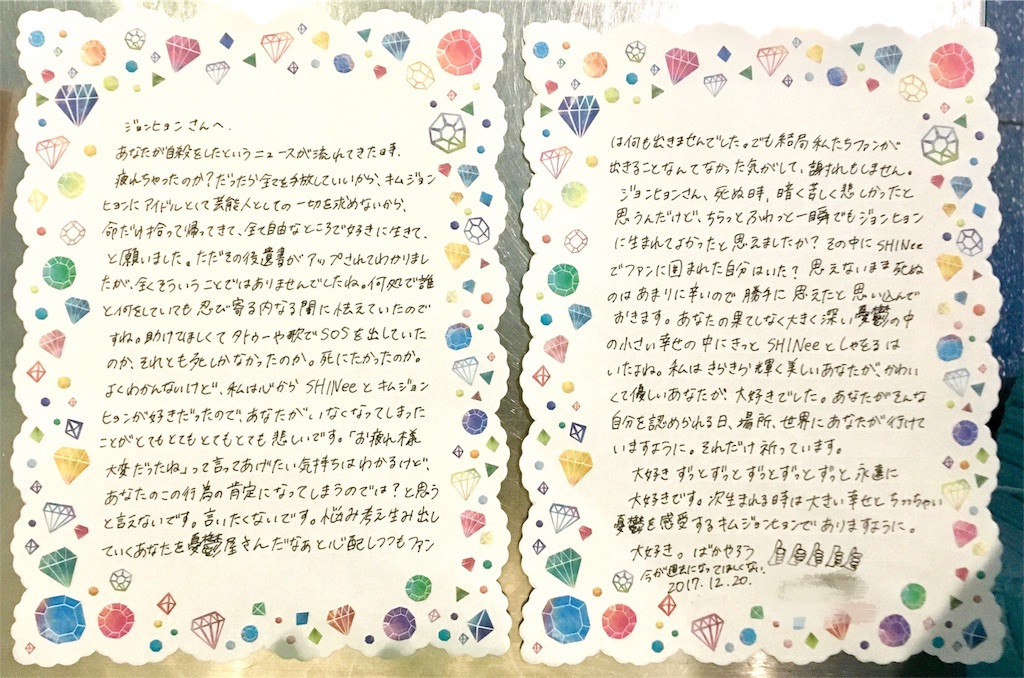 ジョンヒョンさんへ.
あなたが自殺をしたというニュースが流れてきた時、
疲れちゃったのか?だったら全てを手放していいから、キムジョン
ヒョンにアイドルとして芸能人としての一切を求めないから、
命だけ拾って帰ってきて、全て自由なところで好きに生きて、
と願いました。ただその後遺書がアップされてわかりまし
たが、全くそういうことではありませんでしたね。何処で誰
と何をしていても忍び寄る内なる闇に怯えていたので
すね。助けてほしくてタトゥーや歌でSOSを出していた
のか、それとも死しかなかったのか。死にたかったのか。
よくわかんないけど、私は心からSHINeeとキムジョン
ヒョンが好きだったので、あなたがいなくなってしまった
ことがとてもとてもとてもとても悲しいです。「お疲れ様
大変だったね」って言ってあげたい気持ちはわかるけど、
あなたのこの行為の肯定になってしまうのでは?と思う
と言えないです。言いたくないです。悩み考え生み出し
ていくあなたを憂鬱屋さんだなぁと心配しつつもファン
は何も出きませんでした。でも結局私たちファンが
出きることなんてなかった気がして、謝れもしません。
ジョンヒョンさん、死ぬ時、暗く苦しく悲しかったと
思うんだけど、ちらっとふわっと一瞬でもジョンヒョン
に生まれてよかったと思えましたか?その中にSHINee
でファンに囲まれた自分はいた?思えないまま死ぬ
のはあまりに辛いので勝手に思えたと思い込んで
おきます。あなたの果てしなく大きく深い憂鬱の中
の小さい幸せの中にきっとSHINeeとしゃをるは
いたよね。私はきらきら輝く美しいあなたが、かわい
くて優しいあなたが大好きでした。あなたがそんな
自分を認められる日、場所、世界にあなたが行けて
いますように。それだけ祈っています。
大好きずっとずっとずっとずっとずっと永遠に
大好きです。次生まれる時は大きい幸せとちっちゃい
憂鬱を感受するキムジョンヒョンでありますように。
大好き。ばかやろう
今が過去になってほしくない.
2017.12.20.